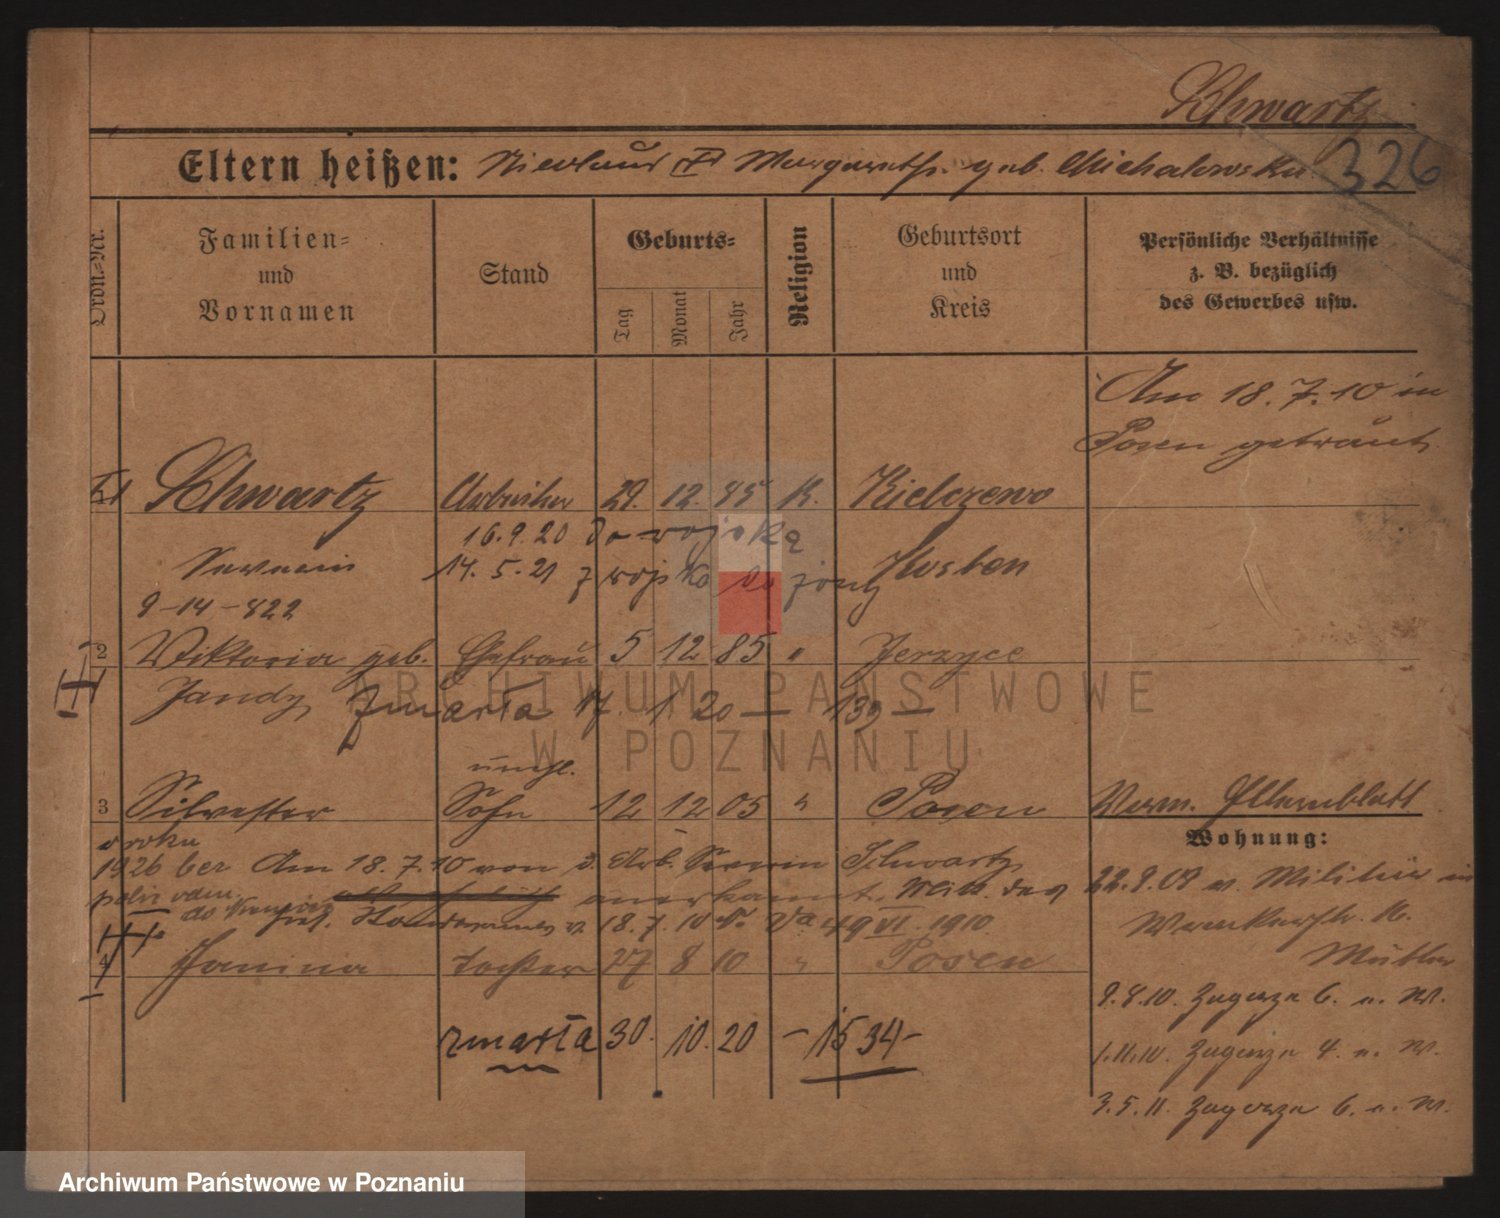 Schwartz
Eltern heißen: Nicolaus Margareth. geb. Michalowska
326
Ordn.-Nr.
Familien-
und
Vornamen
Stand
Geburts-
Tag
Monat
Jahr
Religion
Geburtsort
und
Kreis
Persönliche Verhältnisse
z. B. bezüglich
des Gewerbes usw.
Am 18. 7. 10 in
Posen getraut.
1 Schwartz Arbeiter 29. 12. 85 K. Kielczewo
16.9.20 do wojska
Severin 14. 5. 21 z wojska do żony Kosten
9-14-822
2 Viktoria geb. Ehefrau 5 12 85 " Jerzyce
Jandy zmarła 17. 1 20 — 139 —
unehl.
3 Silvester Sohn 12 12 05 " Posen
Verm. Elternblatt
Wohnung:
w roku
1926 ber Am 18. 7. 10 von d. Arb. Severin Schwartz
anerkannt. Mitt. des
Kgl. Standesamtes v. 18. 7. 10 1910
4 Janina Tochter 27 8 10 " Posen
zmarła 30. 10. 20 - 1534 -
22.9.09 v. Militär in
Mutter
9.8.10. Zagorze 6. b. M.
1.11.10. Zagorze 4. b. M.
3.5.11. Zagorze 6. b. M.
ARCHIWUM PAŃSTWOWE
W POZNANIU
Archiwum Państwowe w Poznaniu